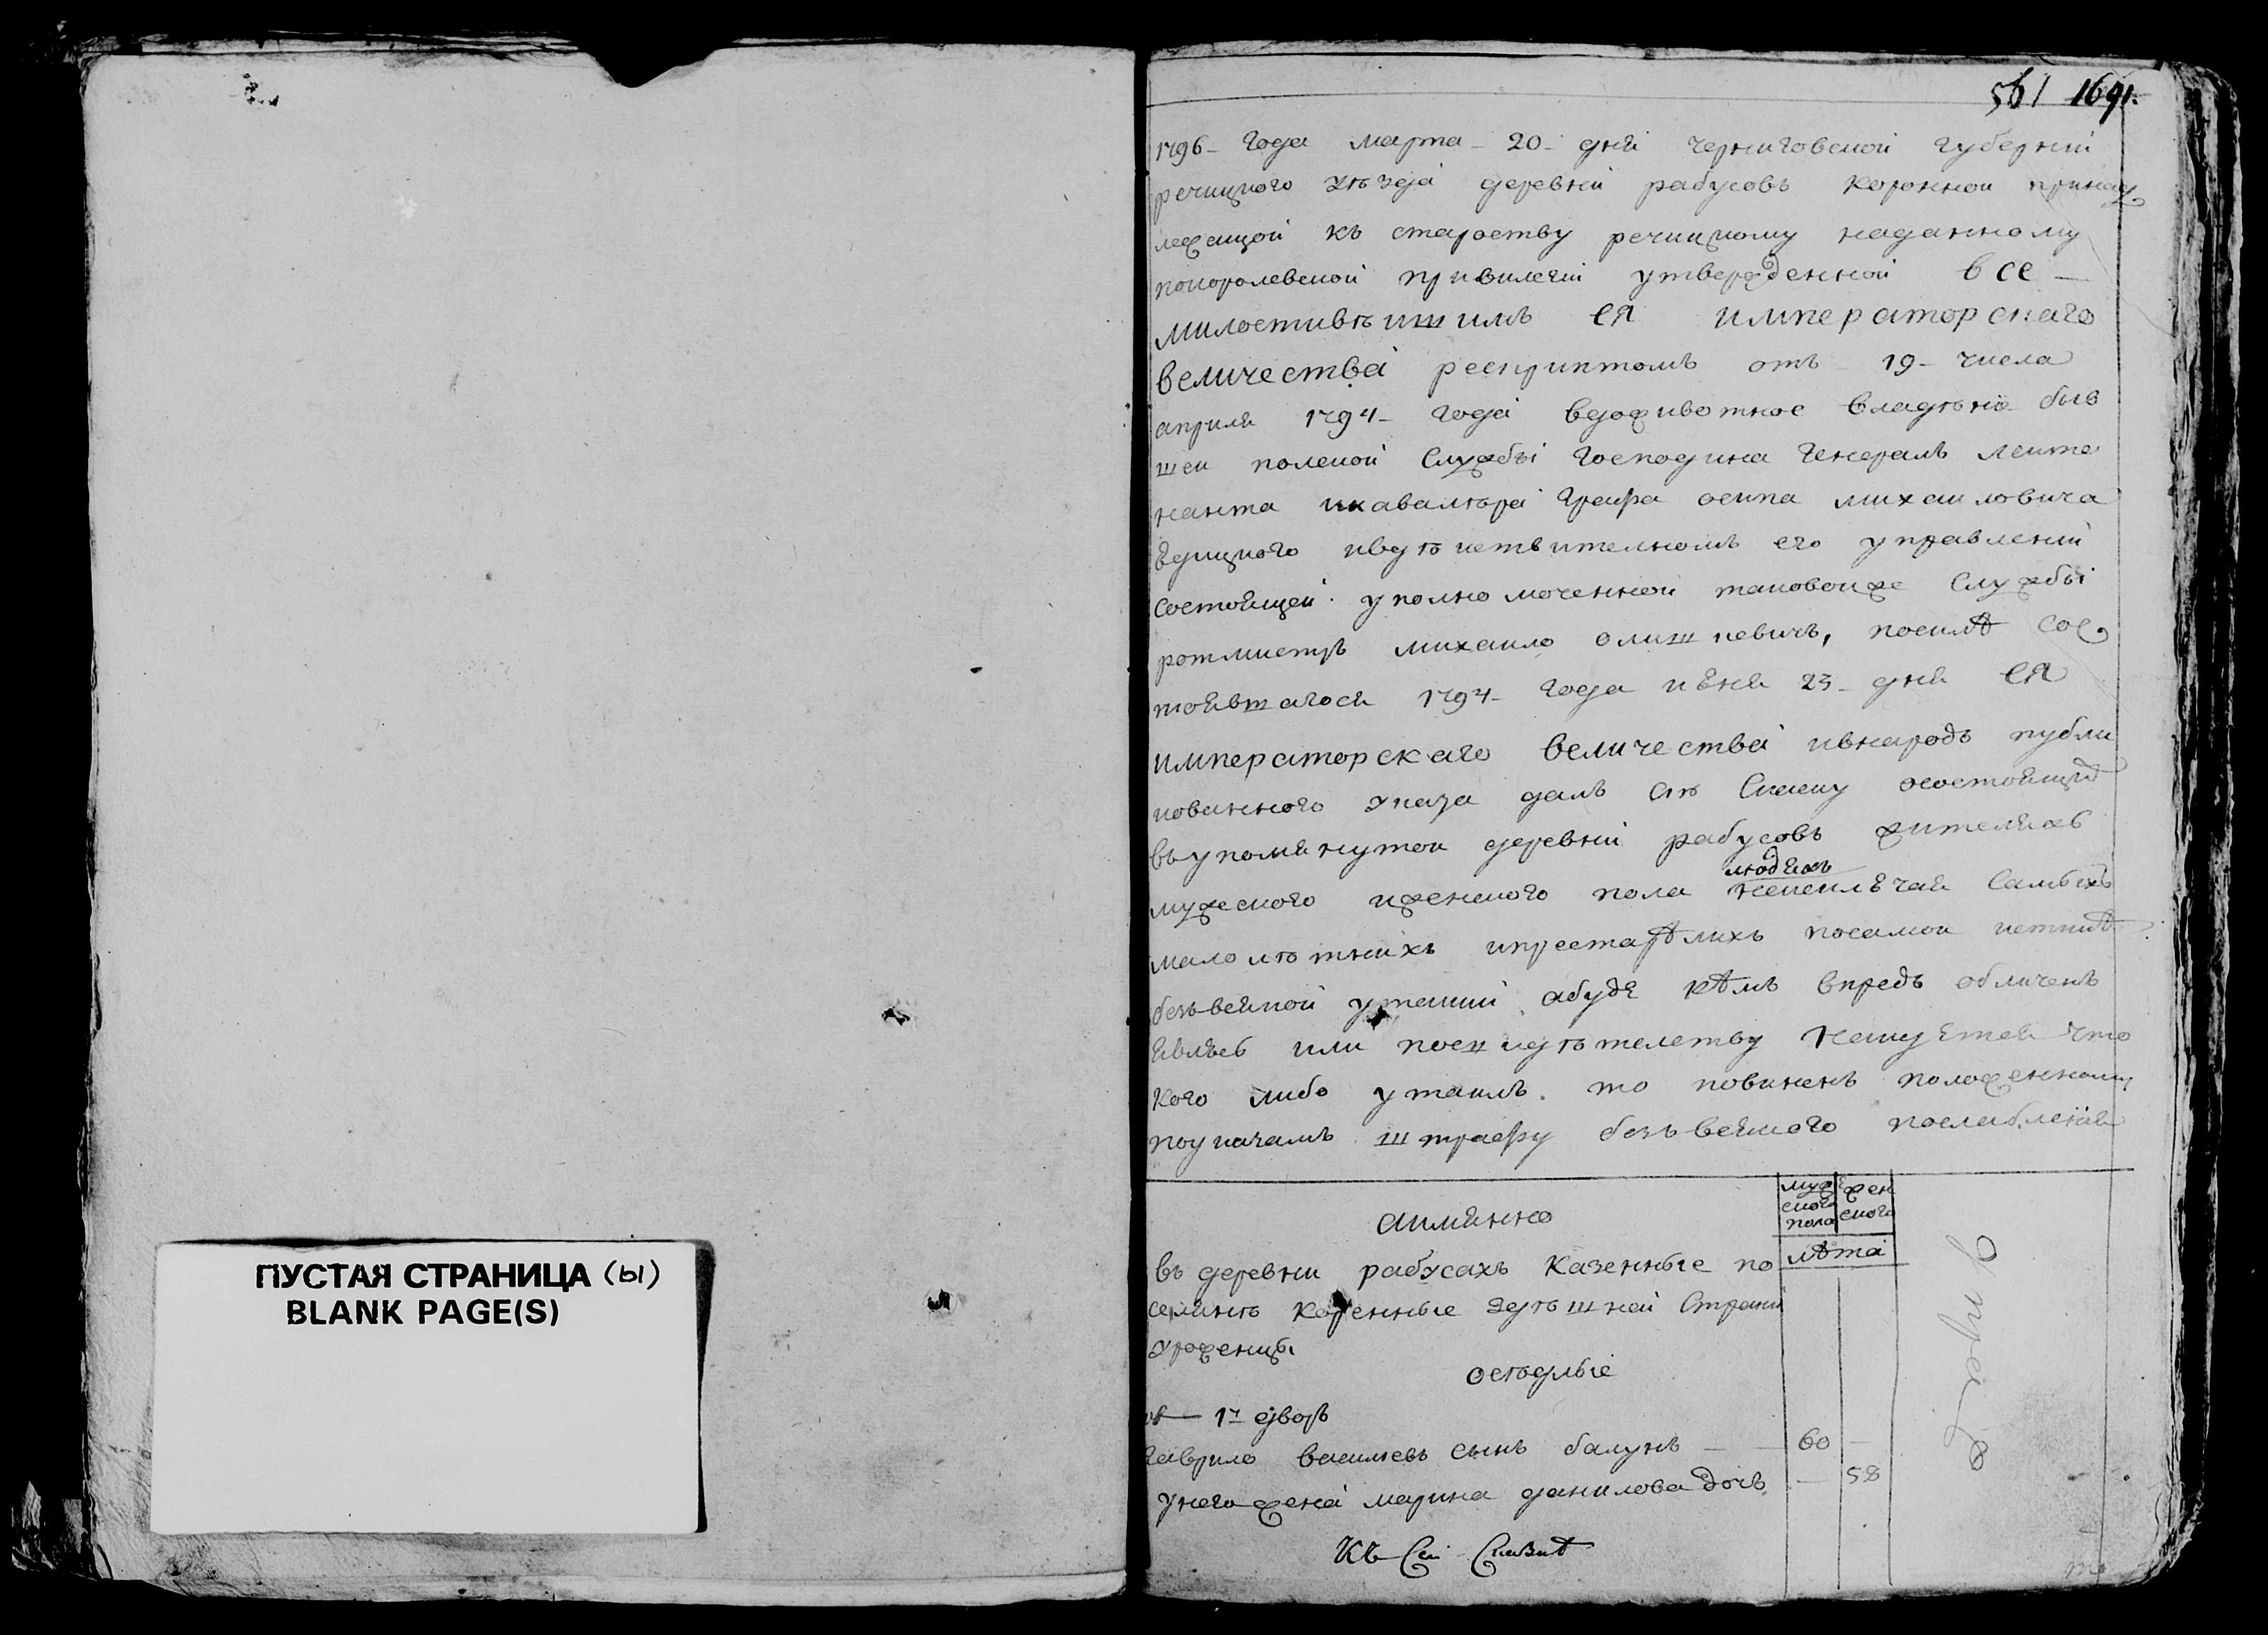 ПУСТАЯ СТРАНИЦА (ы)
BLANK PAGE(S)
561 1691.
1796- года марта - 20 - дня черниговской губернии
речицкого уезда деревни рабусовъ коронной принад
лежащой къ староству речицкому наданному
покоролевской привилегии утвержденной все-
милостивѣишимъ ея императорскаго
величества рескриптомъ отъ 19- числа
априля 1794- года вдоживотное владѣние быв
шеи полской службы господина генералъ леите
нанта икавалѣра графа осипа михаиловича
ивдѣиствителномъ его управлении
состоящей уполномоченной таковоиже службы
ротмистръ михаило олишкевичъ, посилѣ сос
тоявшагося 1794- года июня 23- дня ея
императорскаго величества ивнародъ публи
кованного указа далъ сию скаску осостоящихъ
въупомянутои деревни рабусовъ жителяхъ
мужеского иженского пола людяхъ неисключая самыхъ
малолѣтнихъ ипрестарѣлихъ посамои истиннѣ
безъвсякой утаики абудѣ кѣмъ впредь обличенъ
явлюсь или посвидѣтелству что
кого либо утаилъ. то повиненъ положенному
поуказамъ штрафу безъвсякого послабления
аимянно
мужеского пола
женского
лѣта
въ деревни рабусахъ казенные по
селяне коренные здѣшней страни
уроженцы
осѣдлые
1й дворъ
гаврило василѣвъ сынъ балунъ - 60 -
унего жена марина данилова дочь - 58
къ сей сказкѣ